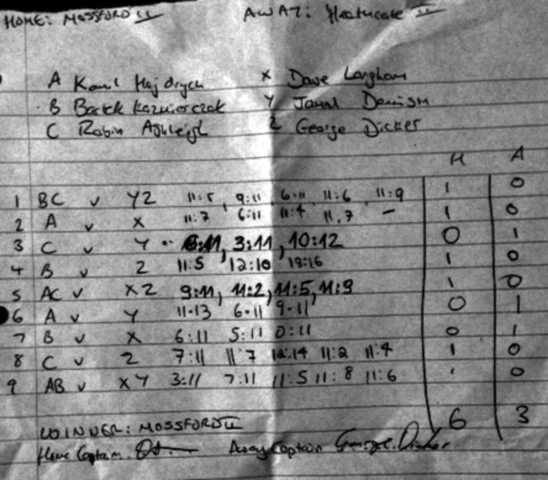 HOME: MOSSFORD II AWAY: Heathcote II
A Kamil Hajdrych X Dave Langham
B Bartek Kazmierczak Y Jamal Danish
C Robin Ashleigh Z George Dicker
H A
1 BC v YZ 11:5, 9:11, 6:11, 11:6, 11:9 1 0
2 A v X 11:7 6:11 11:4 11:7 – 1 0
3 C v Y 6:11, 3:11, 10:12 0 1
4 B v Z 11:5 12:10 18:16 1 0
5 AC v XZ 9:11, 11:2, 11:5, 11:9 1 0
6 A v Y 11-13 6-11 9-11 0 1
7 B v X 6:11 5:11 0:11 0 1
8 C v Z 7:11 11:7 12:14 11:2 11:4 1 0
9 AB v XY 3:11 7:11 11:5 11:8 11:6 1 0
6 3
WINNER: MOSSFORD II
Home Captain. Away Captain George Dicker